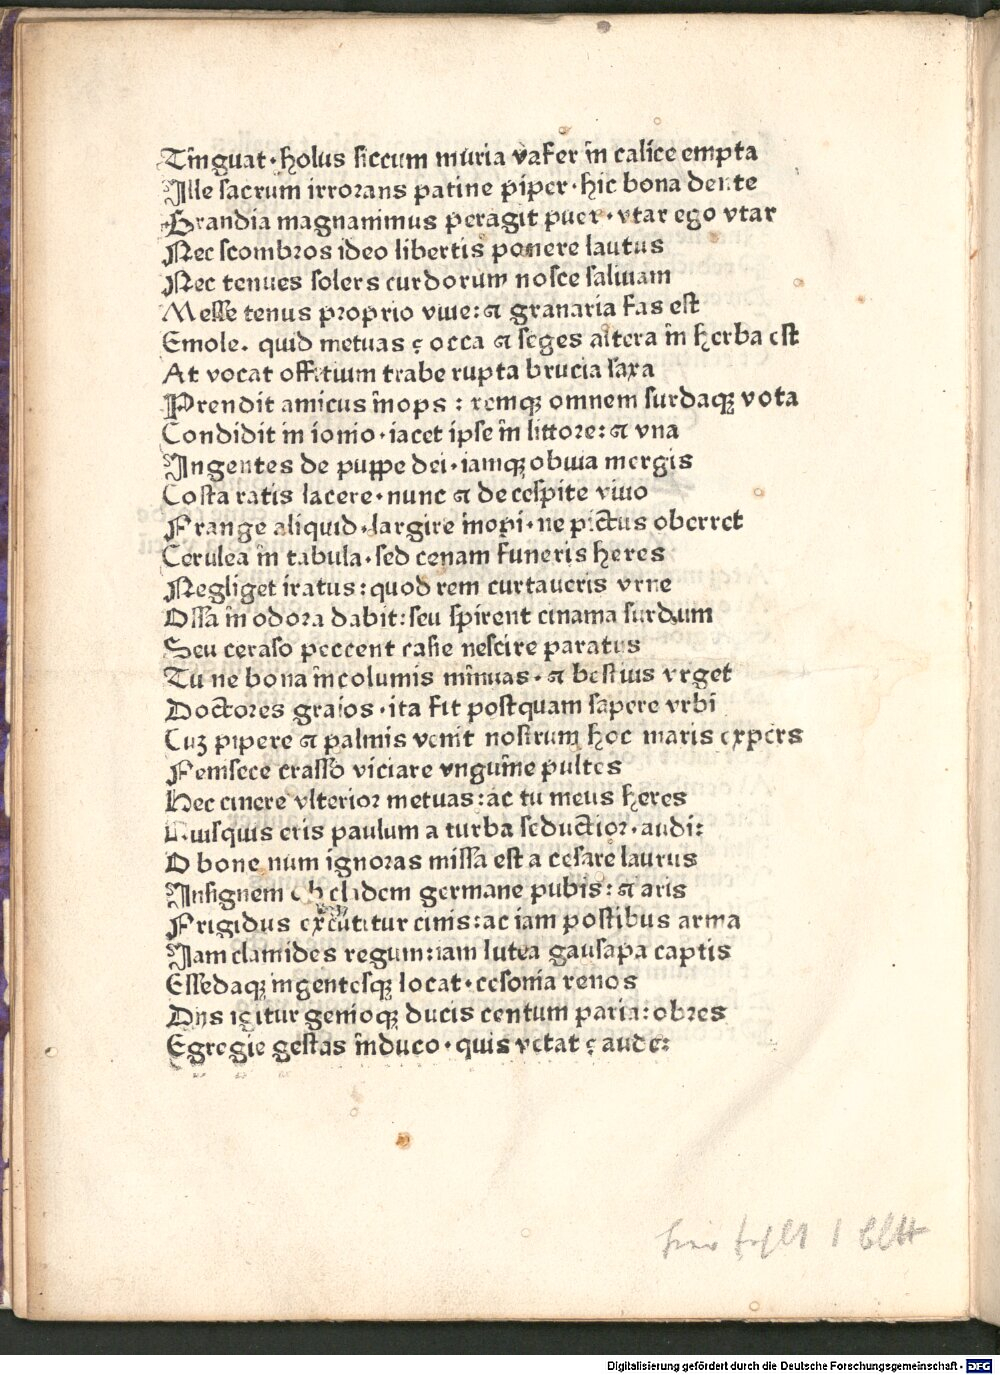 Tinguat · holus siccum muria vafer in calice empta
Ille sacrum irrorans patine piper · hic bona dente
Grandia magnanimus peragit puer · vtar ego vtar
Nec scombros ideo libertis ponere lautus
Nec tenues solers curdorum nosce saliuam
Messe tenus proprio viue: ⁊ granaria fas est
Emole. quid metuas ? occa ⁊ seges altera in herba est
At vocat offitium trabe rupta brucia saxa
Prendit amicus inops : remqꝫ omnem surdaqꝫ vota
Condidit in ionio · iacet ipse in littore: ⁊ vna
Ingentes de puppe dei · iamqꝫ obuia mergis
Costa ratis lacere · nunc ⁊ de cespite viuo
Frange aliquid · largire inopi · ne pictus oberret
Cerulea in tabula · sed cenam funeris heres
Negliget iratus: quod rem curtaueris vrne
Ossa in odora dabit: seu spirent cinama surdum
Seu ceraso peccent casie nescire paratus
Tu ne bona incolumis minuas · ⁊ bestius vrget
Doctores graios · ita fit postquam sapere vrbi
Cuꝫ pipere ⁊ palmis venit nostrum hoc maris expers
Fenisece crasso viciare vnguine pultes
Hec cinere vlterior metuas: ac tu meus heres
Quisquis eris paulum a turba seductior · audi:
O bone num ignoras missa est a cesare laurus
Insignem ob cladem germane pubis: ⁊ aris
Frigidus excutitur cinis: ac iam postibus arma
Iam clamides regum: iam lutea gausapa captis
Essedaqꝫ ingentesqꝫ locat · cesonia renos
Diis igitur genioqꝫ ducis centum paria: obres
Egregie gestas induco · quis vetat ? aude:
hier fehlt 1 bltt
Digitalisierung gefördert durch die Deutsche Forschungsgemeinschaft · DFG